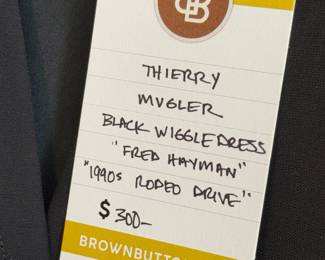 THIERRY
MUGLER
BLACK WIGGLE DRESS
"FRED HAYMAN"
"1990s RODEO DRIVE"
$300-